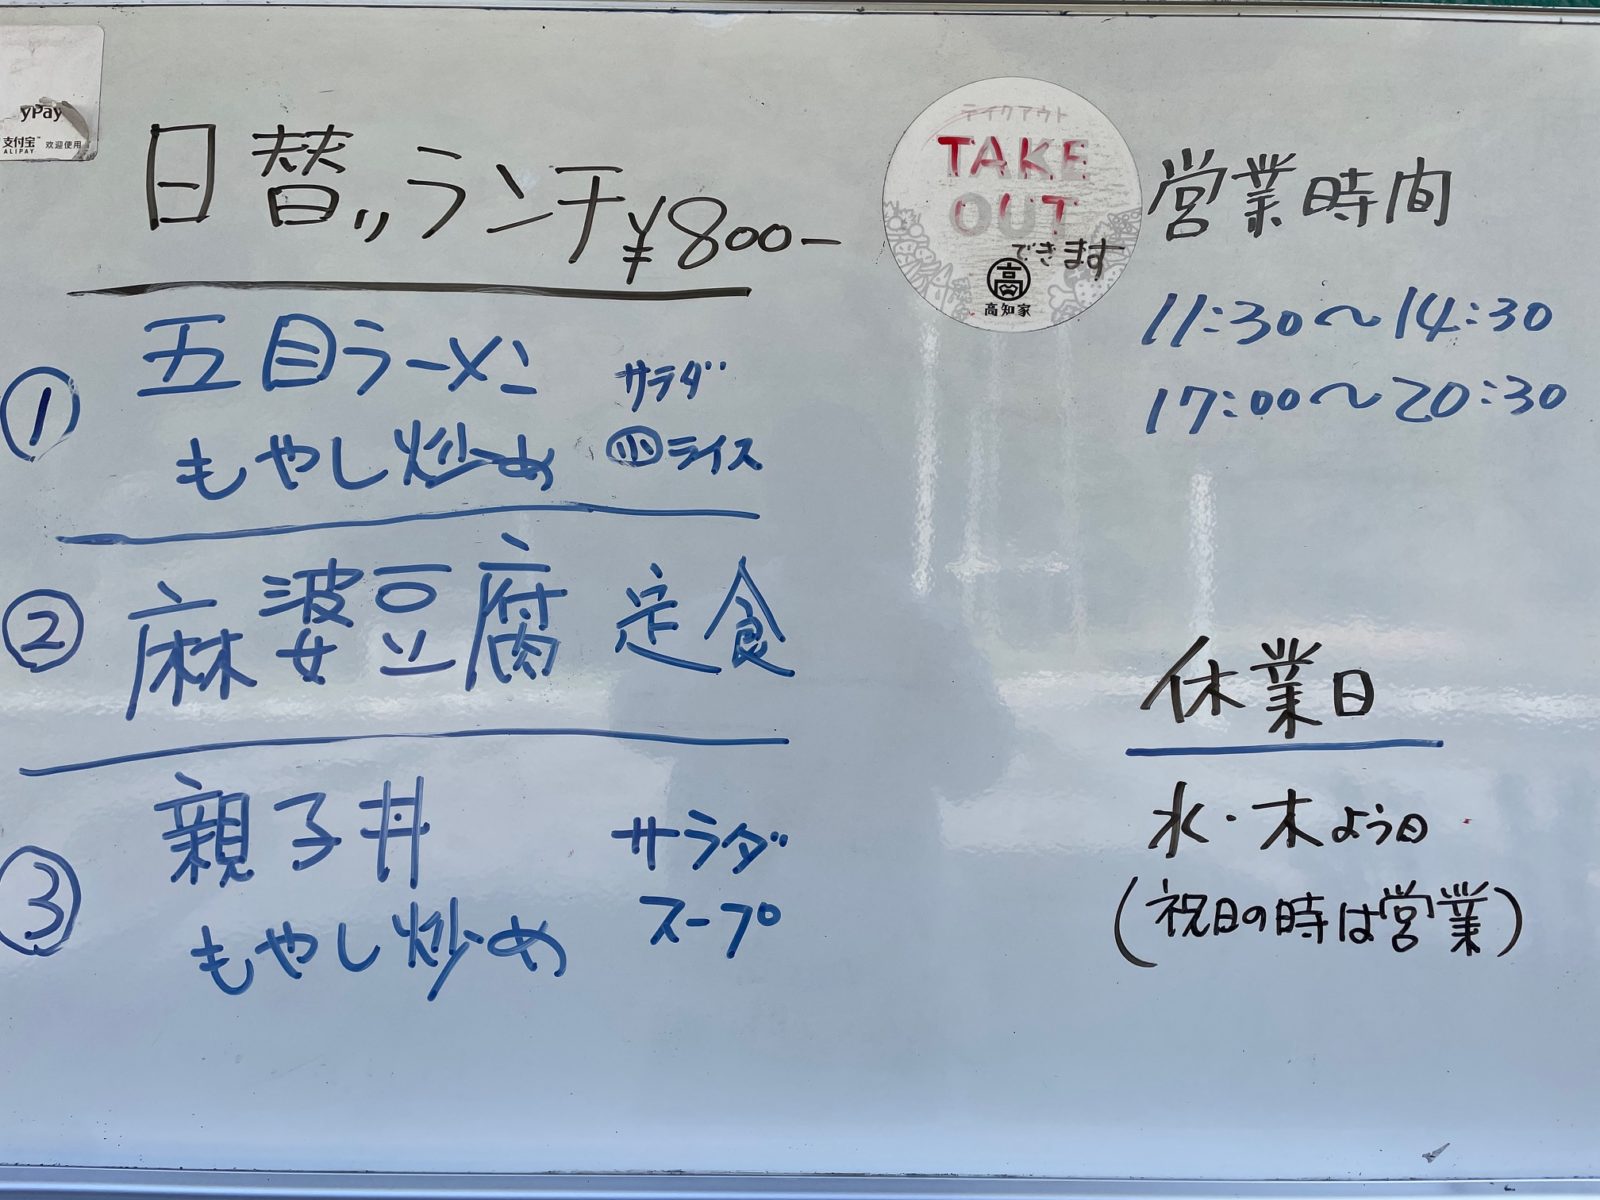 yPay
支付宝™ 欢迎使用
ALIPAY
日替りランチ ¥800-
① 五目ラーメン サラダ
もやし炒め ㊙ライス
② 麻婆豆腐 定食
③ 親子丼 サラダ
もやし炒め スープ
テイクアウト
TAKE
OUT
できます
高
高知家
営業時間
11:30〜14:30
17:00〜20:30
休業日
水・木よう日
(祝日の時は営業)